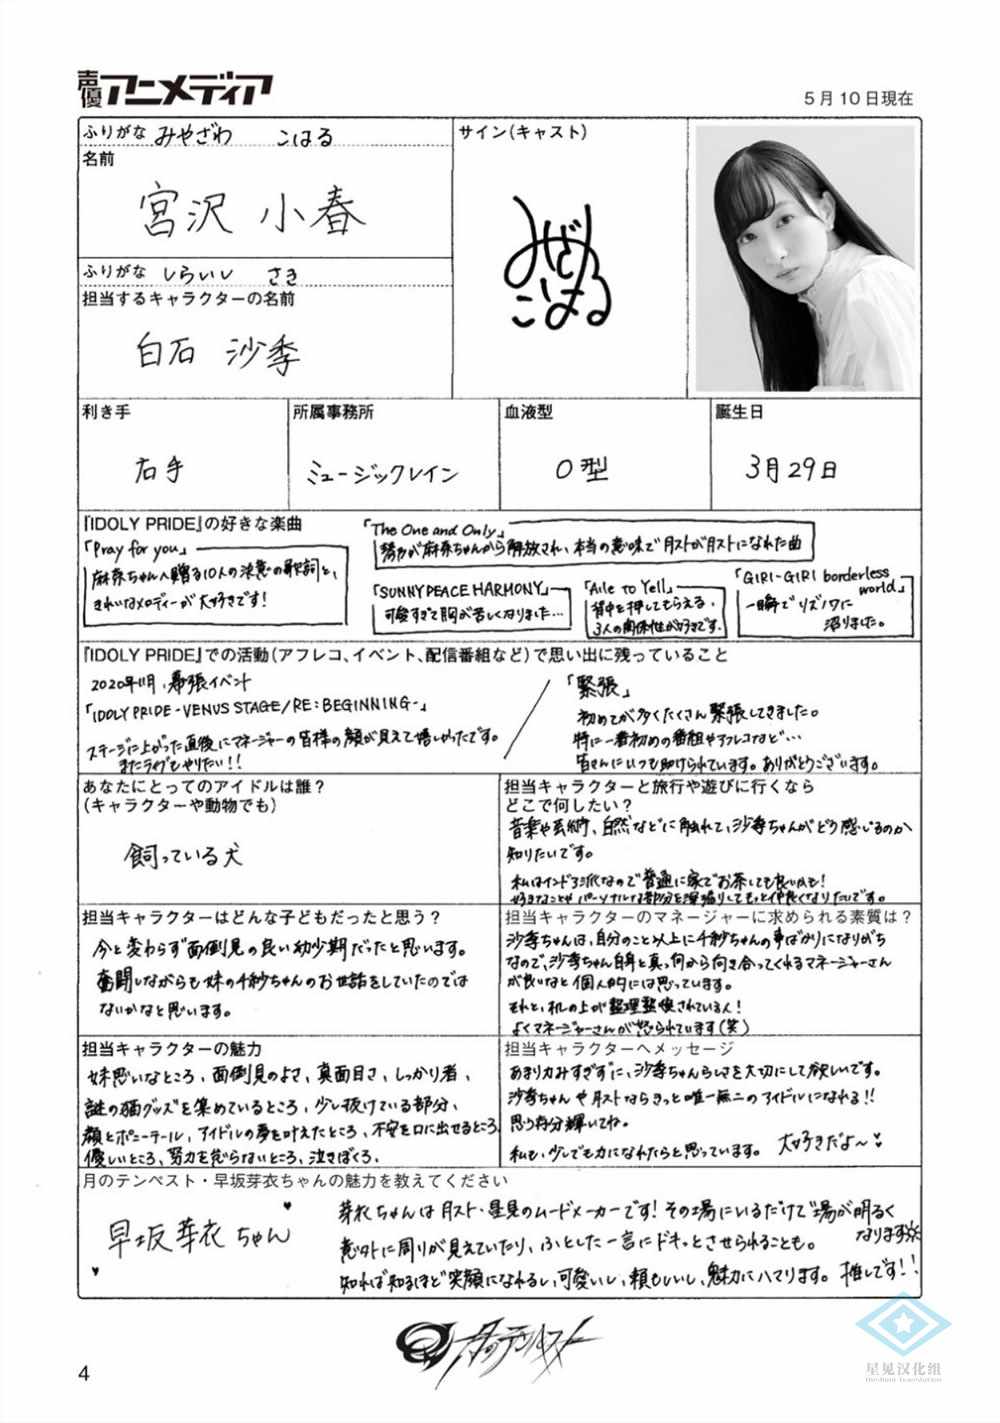 声優アニメディア
5月10日現在
ふりがな みやざわ こはる
名前
宮沢 小春
サイン(キャスト)
みやざわ
こはる
ふりがな しらいし さき
担当するキャラクターの名前
白石 沙季
利き手
右手
所属事務所
ミュージックレイン
血液型
O型
誕生日
3月29日
『IDOLY PRIDE』の好きな楽曲
「Pray for you」
麻奈ちゃんへ贈る10人の決意の歌詞と、
きれいなメロディーが大好きです!
「The One and Only」
努力が麻奈ちゃんから解放され、本当の意味で月ストが月ストになれた曲
「SUNNY PEACE HARMONY」
可愛すぎて胸が苦しくなりました…
「Aile to Yell」
背中を押してもらえる、
3人の関係性が好きです。
「GIRI-GIRI borderless world」
一瞬でリズノワに
沼りました。
『IDOLY PRIDE』での活動(アフレコ、イベント、配信番組など)で思い出に残っていること
2020年11月、幕張イベント
「IDOLY PRIDE -VENUS STAGE/RE:BEGINNING-」
ステージに上がった直後にマネージャーの皆様の顔が見えて嬉しかったです。
またライブもやりたい!!
「緊張」
初めてが多くたくさん緊張してきました。
特に一番初めの番組やアフレコなど…
皆さんにいつも助けられています。ありがとうございます。
あなたにとってのアイドルは誰?
(キャラクターや動物でも)
飼っている犬
担当キャラクターと旅行や遊びに行くなら
どこで何したい?
音楽や芸術、自然などに触れて、沙季ちゃんがどう感じるのか
知りたいです。
私はインドア派なので普通に家でお茶しても良いかも!
好きなことやパーソナルな部分を深掘りしてもっと仲良くなりたいです。
担当キャラクターはどんな子どもだったと思う?
今と変わらず面倒見の良い幼少期だったと思います。
奮闘しながらも妹の千紗ちゃんのお世話をしていたのでは
ないかなと思います。
担当キャラクターのマネージャーに求められる素質は?
沙季ちゃんは、自分のこと以上に千紗ちゃんの事ばかりになりがち
なので、沙季ちゃん自身と真っ向から向き合ってくれるマネージャーさん
が良いなと個人的には思っています。
それと、机の上が整理整頓されている人!
よくマネージャーさんが怒られています(笑)
担当キャラクターの魅力
妹思いなところ、面倒見のよさ、真面目さ、しっかり者、
謎の猫グッズを集めているところ、少し抜けている部分、
顔とポニーテール、アイドルの夢を叶えたところ、不安を口に出せるところ
優しいところ、努力を怠らないところ、泣きぼくろ、
担当キャラクターへメッセージ
あまり力みすぎずに、沙季ちゃんらしさを大切にして欲しいです。
沙季ちゃんや月ストならきっと唯一無二のアイドルになれる!!
思う存分輝いてね。
私も、少しでも力になれたらと思っています。 大好きだよ〜
月のテンペスト・早坂芽衣ちゃんの魅力を教えてください
早坂芽衣ちゃん
芽衣ちゃんは月スト・星見のムードメーカーです!その場にいるだけで場が明るく
なります
意外に周りが見えていたり、ふとした一言にドキっとさせられることも。
知れば知るほど笑顔になれるし、可愛いし、頼もしいし、魅力にハマります。推しです!!
月のテンペスト
4
星见汉化组